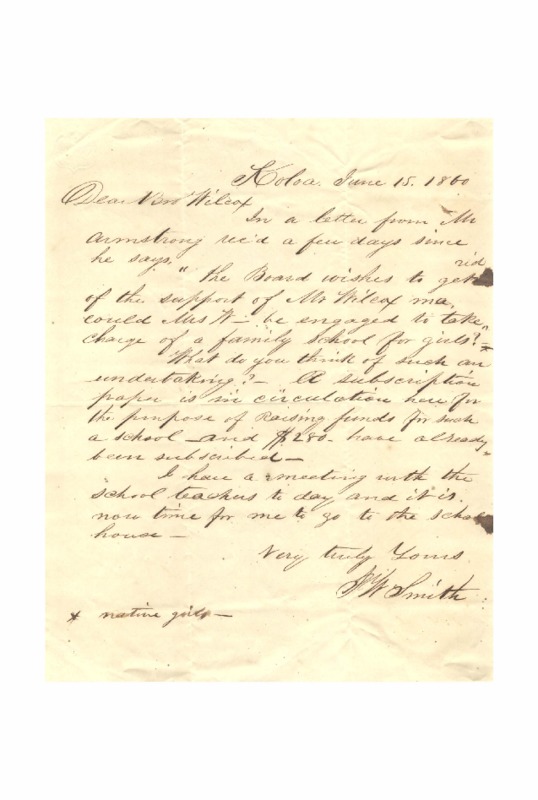 Koloa. June 15. 1860
Dear Bro Wilcox
In a letter from Mr
Armstrong rec'd a few days since
he says. "The Board wishes to get rid
of the support of Mr Wilcox
could Mrs W— be engaged to take
charge of a family school for girls?"*
What do you think of such an
undertaking?— A subscription
paper is in circulation here for
the purpose of raising funds for such
a school — and $280— have already
been subscribed —
I have a meeting with the
school teachers to day and it is
now time for me to go to the school
house —
Very truly Yours
J W Smith
* native girls —